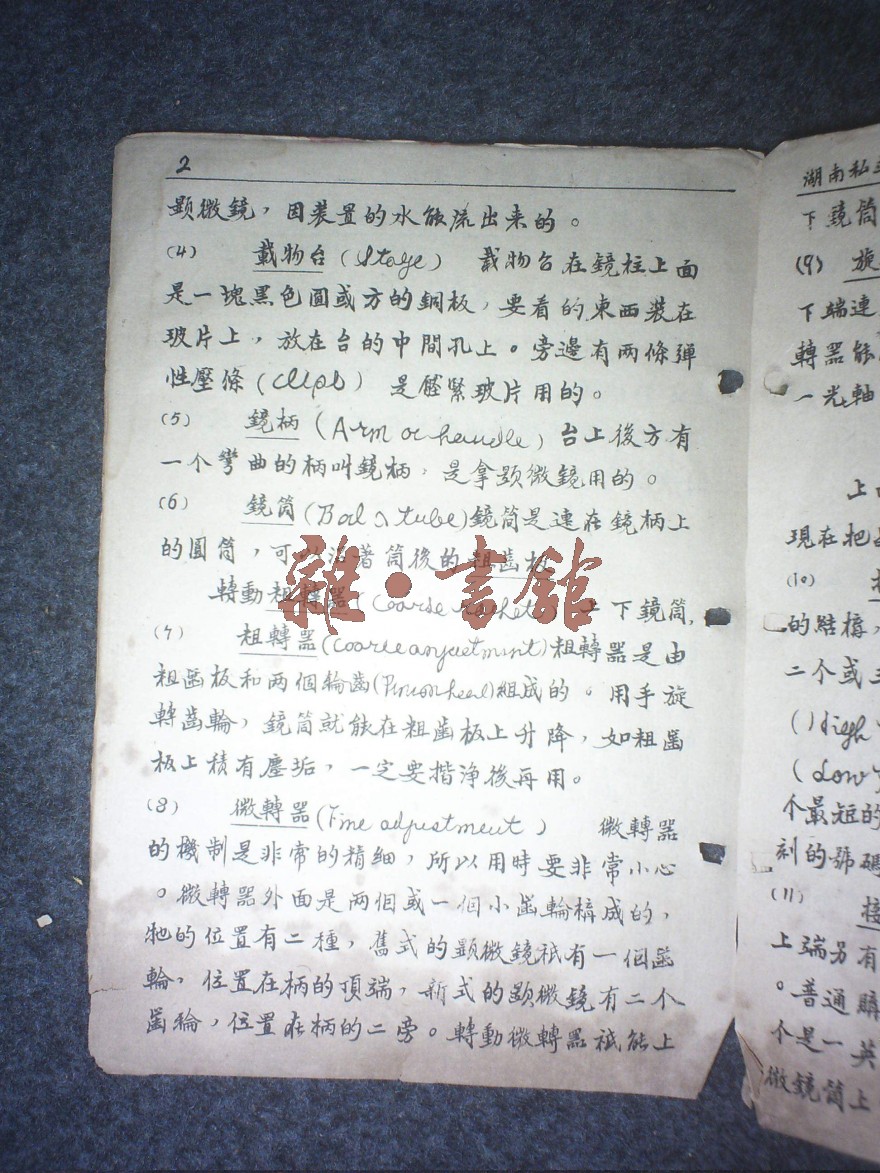 2
顕微鏡，因装置的水能流出來的。
(4) 載物台(Stage) 載物台在鏡柱上面
是一塊黑色圓或方的銅板，要看的東西装在
玻片上，放在台的中間孔上。旁邊有两條彈
性壓條(Clipb) 是壓緊玻片用的。
(5) 鏡柄(Arm or handle)台上後方有
一个彎曲的柄叫鏡柄，是拿顕微鏡用的。
(6) 鏡筒(Body tube)鏡筒是連在鏡柄上
的圓筒，可以沿著筒後的粗齒板
轉動粗轉器(Coarse rachet) 上下鏡筒，
(7) 粗轉器(Coarse anjustmint)粗轉器是由
粗齒板和两個輪齒(Pinion heal)組成的。用手旋
轉齒輪，鏡筒就能在粗齒板上升降，如粗齒
板上積有塵垢，一定要揩浄後再用。
(8) 微轉器(Fine adjustment) 微轉器
的機制是非常的精細，所以用時要非常小心
。微轉器外面是两個或一個小齒輪構成的，
牠的位置有二種，舊式的顕微鏡祗有一個齒
輪，位置在柄的頂端，新式的顕微鏡有二个
齒輪，位置在柄的二旁。轉動微轉器祗能上
雜·書館
湖南私
下鏡筒
(9) 旋
下端連
轉器能
一光軸
上
現在把
(10)
的結構，
二个或
()High
(Low
个最短的
刻的號碼
(11) 接
上端另有
。普通購
个是一英
微鏡筒上